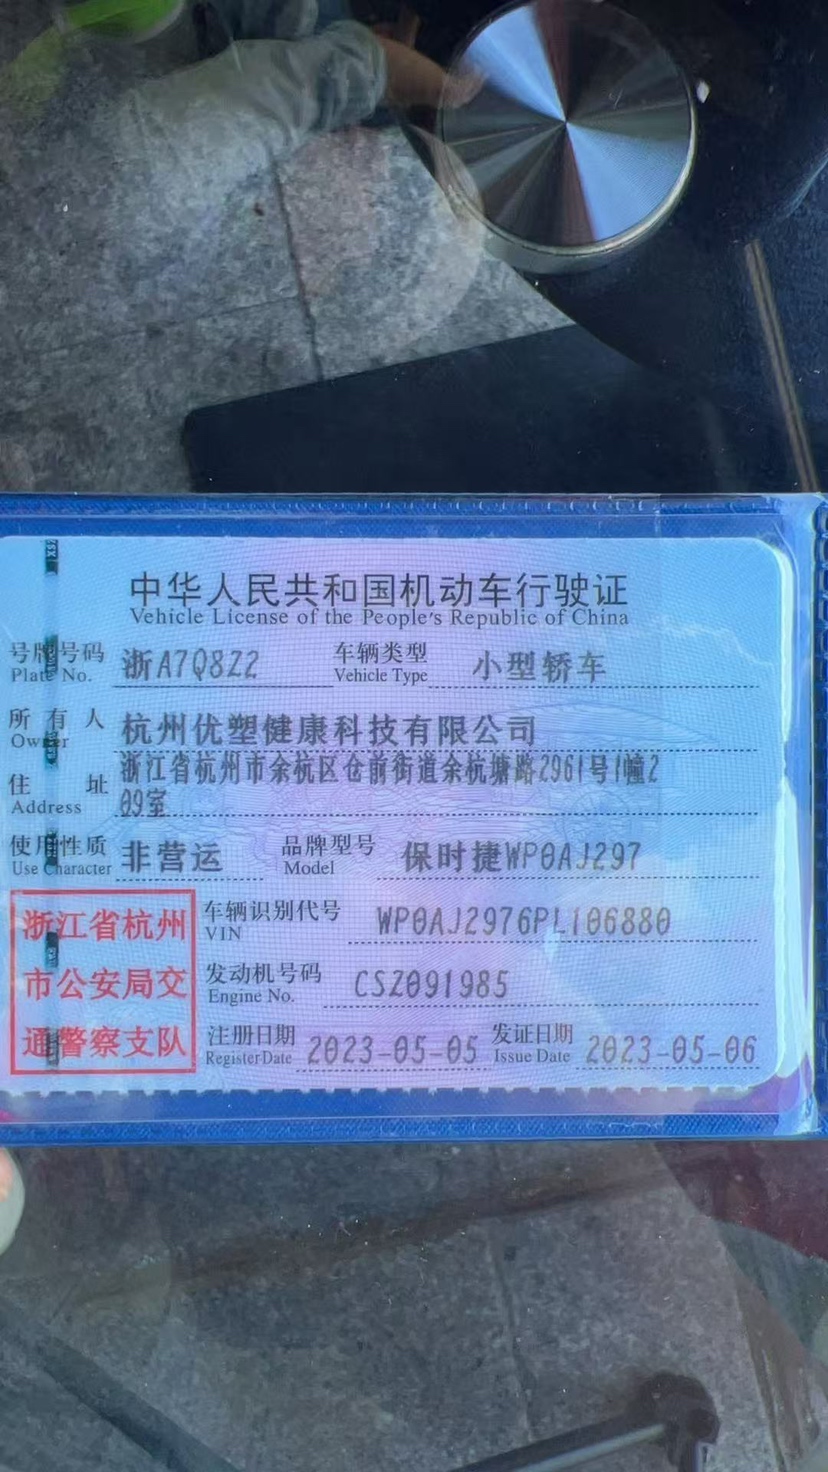 中华人民共和国机动车行驶证
Vehicle License of the People's Republic of China
号牌号码 浙A7Q8Z2 车辆类型 小型轿车
Plate No. Vehicle Type
所有人 杭州优塑健康科技有限公司
Owner
住址 浙江省杭州市余杭区仓前街道余杭塘路2961号1幢2
Address 09室
使用性质 非营运 品牌型号 保时捷WP0AJ297
Use Character Model
浙江省杭州 车辆识别代号 WP0AJ2976PL106880
VIN
市公安局交 发动机号码 CSZ091985
Engine No.
通警察支队 注册日期 2023-05-05 发证日期 2023-05-06
Register Date Issue Date